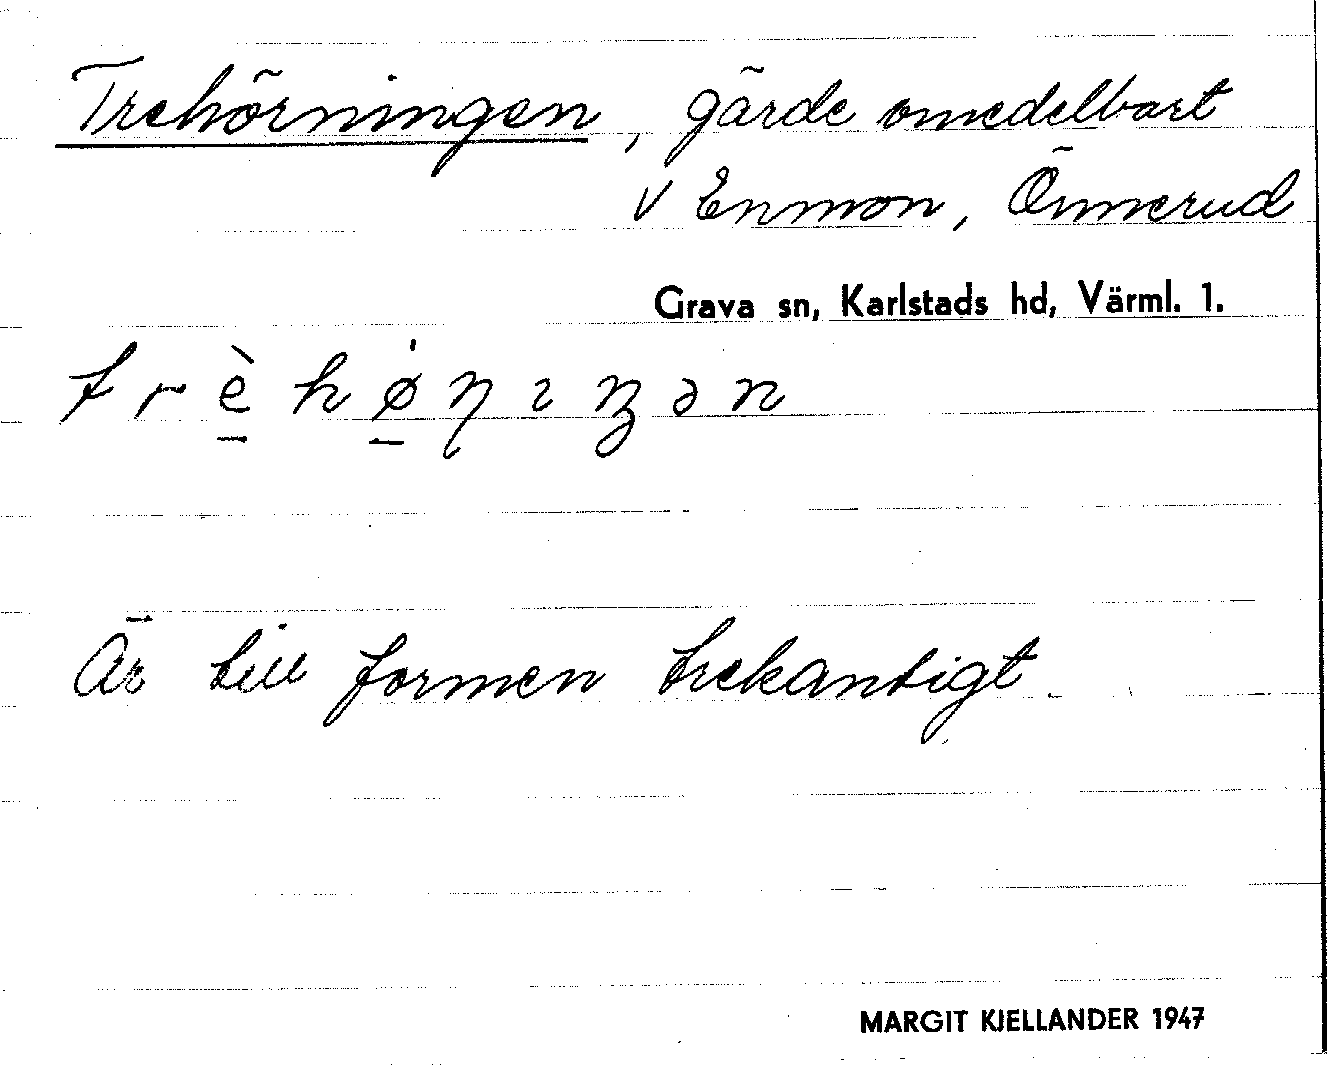 Trehörningen, gärde omedelbart
v Enmon, Önnerud
Grava sn, Karlstads hd, Värml. 1.
t r è̱ h ǿ̱ ɳ ɩ ŋ ə n
Är till formen trekantigt.
MARGIT KJELLANDER 1947